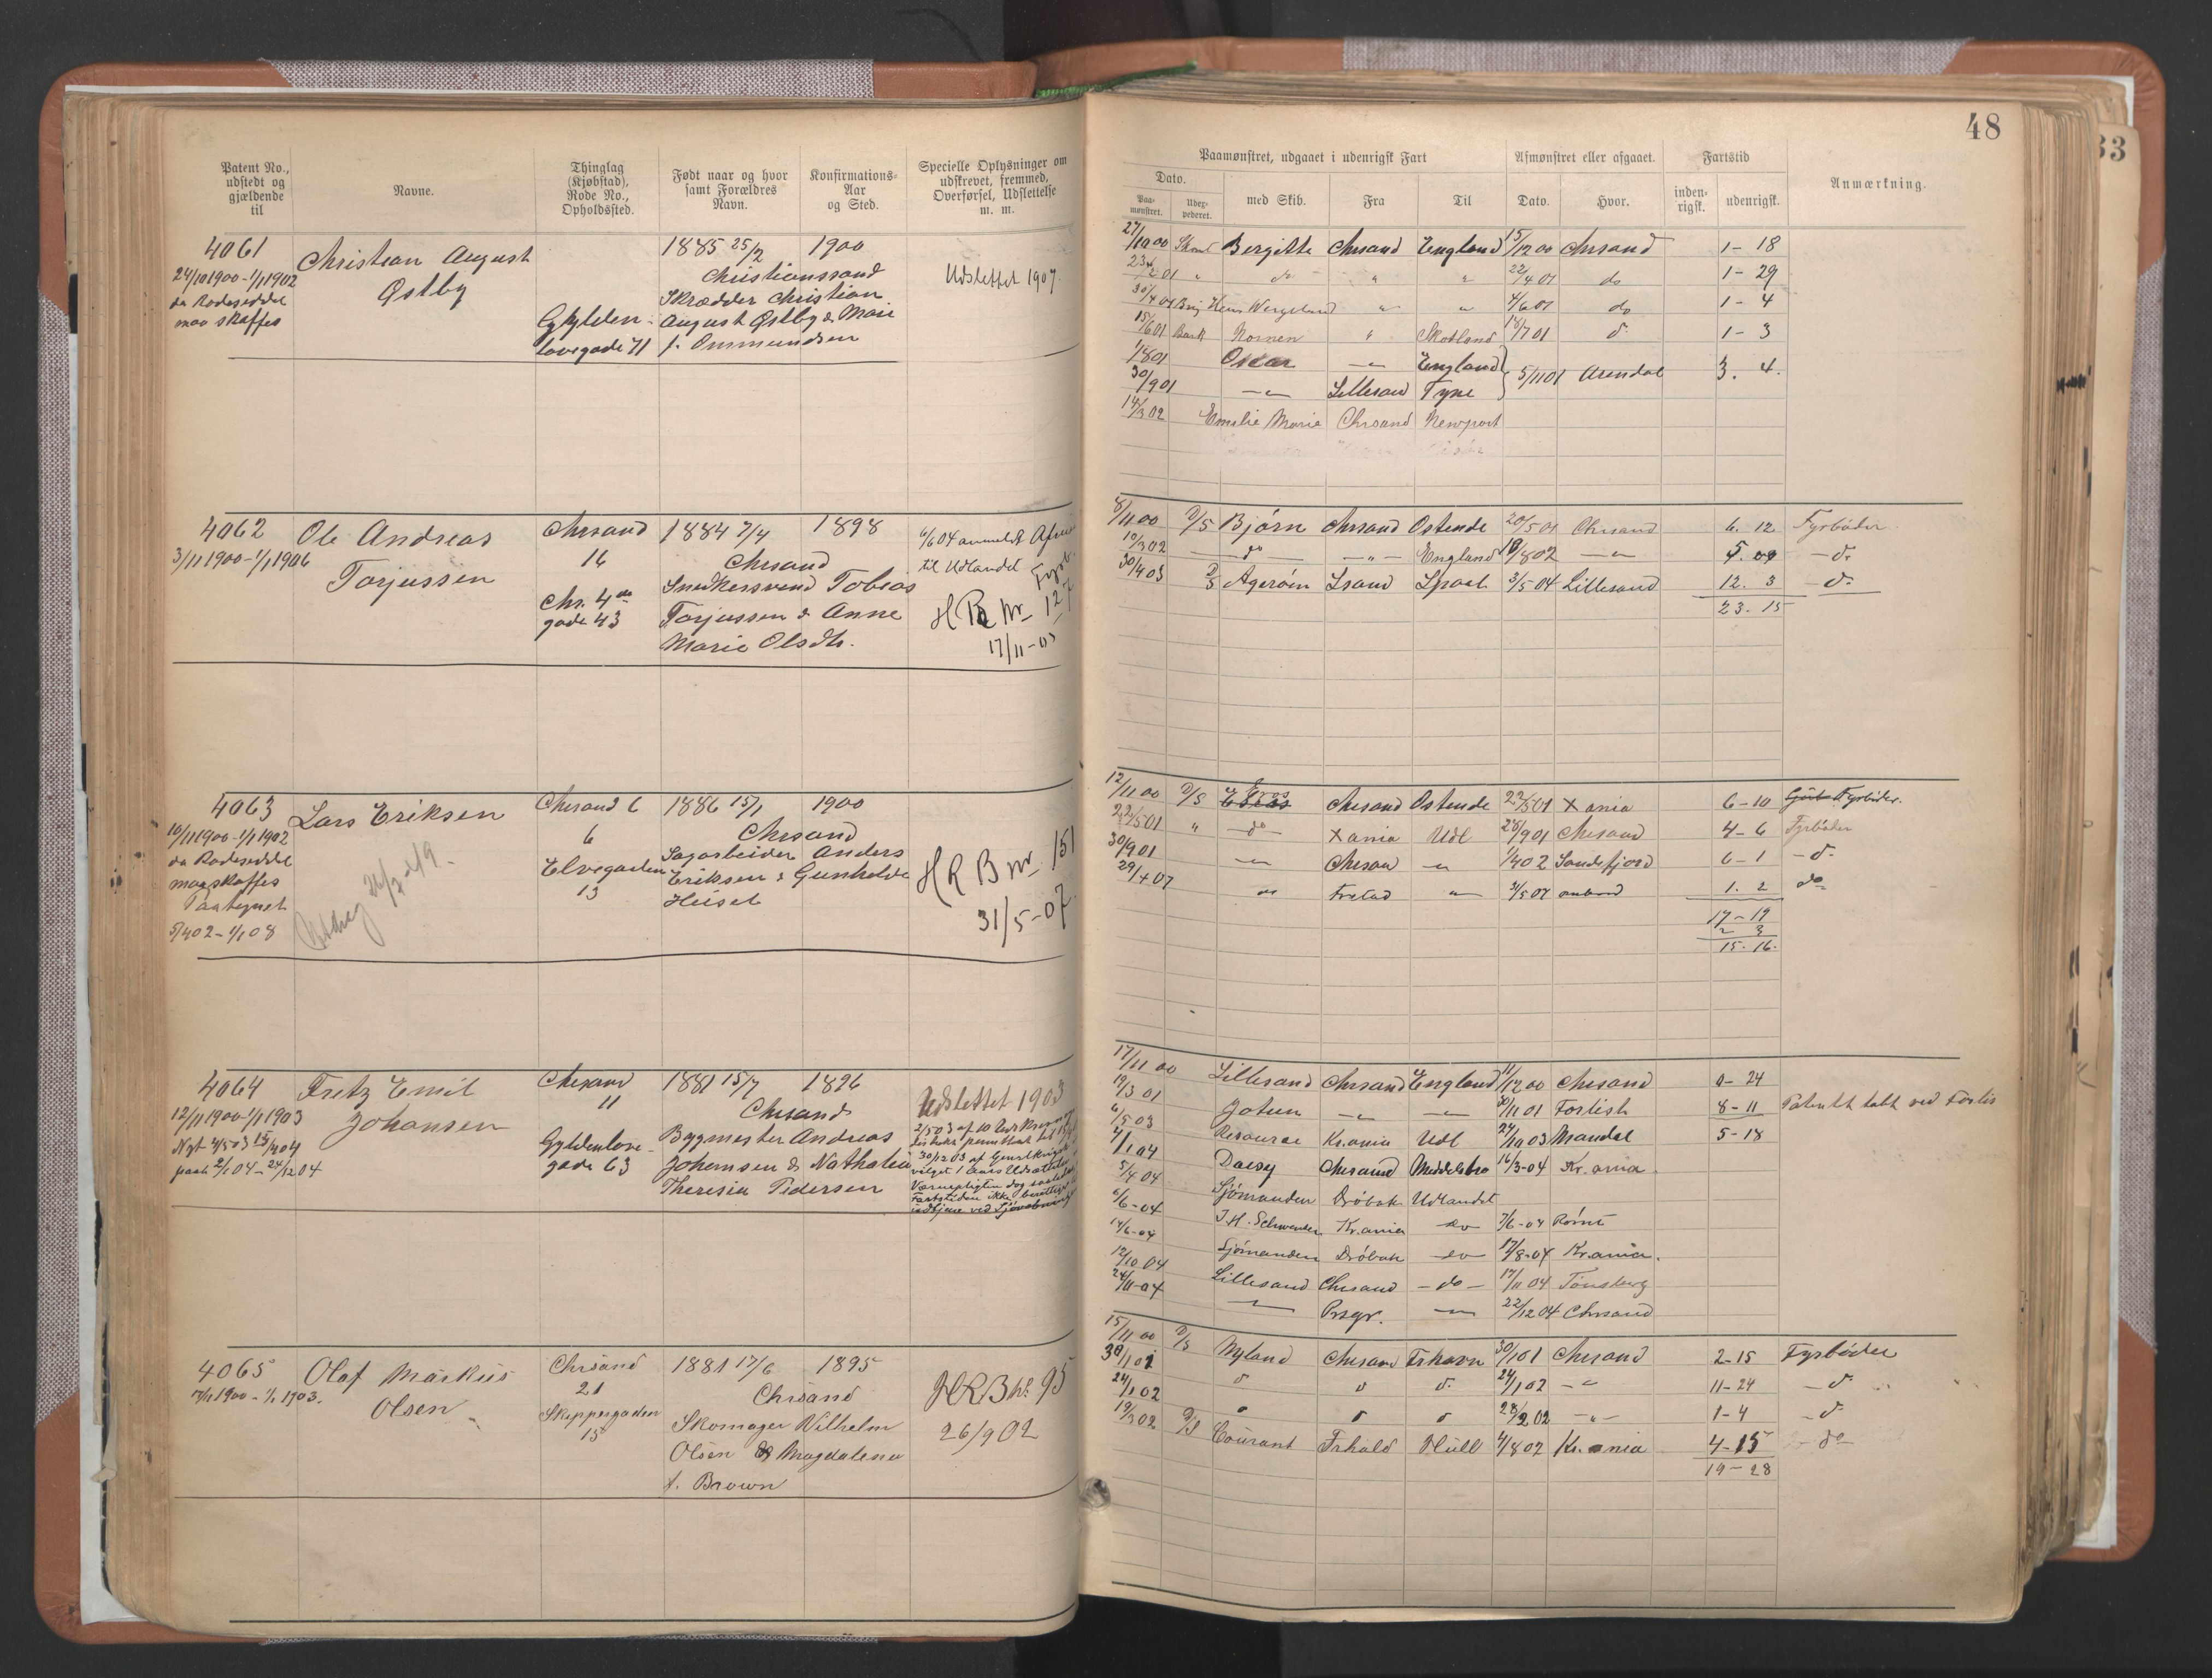 48
Patent No., udstedt og gjældende til
Navne.
Thinglag (Kjøbstad), Rode No., Opholdssted.
Født naar og hvor samt Forældres Navn.
Konfirmations-Aar og Sted.
Specielle Oplysninger om udskrevet, fremmed, Overførsel, Udslettelse m. m.
Paamønstret, udgaaet i udenrigsk Fart
Afmønstret eller afgaaet.
Fartstid
Anmærkning.
Dato.
Paamønstret. Udexpederet. med Skib. Fra Til Dato. Hvor. indenrigsk. udenrigsk.
4061 Christian August 1885 25/2 1900
24/10 1900 - 1/1 1902 Østby Christianssand Udslettet 1907.
da Rodeseddel Skrædder Christian
maa skaffes Gyldenløvegade 71 August Østby & Marie
f. Ommundsen
27/10 00 Bergitte Chrsand England 15/12 00 Chrsand 1 - 18
23/2 01 " do " " 22/4 01 do 1 - 29
30/4 01 Brig Henr. Wergeland " " 4/6 01 do 1 - 4
15/6 01 Bark Nornen " Skotland 14/7 01 d. 1 - 3
1/8 01 Oscar " England
30/9 01 " Lillesand Tyne 5/11 01 Arendal 3. 4.
14/3 02 Emilie Marie Chrsand Newport
4062 Ole Andreas Chrsand 1884 7/4 1898 6/6 04 anmeldt
3/11 1900 - 1/1 1906 Torjussen 16 Chrsand til Udlandet
Chr. 4de gade 43 Snedkersvend Tobias
Torjussen & Anne H R B Nr 127
Marie Olsdtr. 17/11-03
8/11 00 D/S Bjørn Chrsand Ostende 20/5 01 Chrsand 6. 12 Fyrbøder
10/3 02 do " England 18/8 02 " 5. 09 d.
30/4 03 D/S Agerøen 3/5 04 Lillesand 12. 3 d.
23. 15
4063 Lars Eriksen Chrsand 6 1886 15/1 1900
10/11 1900 - 1/1 1902 6 Chrsand
da Rodeseddel Elvegaden Sagarbeider Anders
maa skaffes 13 Eriksen & Gunhilde H R B Nr 151
Paategnet 31/5-07
5/4 02 - 1/1 08
12/11 00 D/S Eros Chrsand Ostende 22/5 01 Xania 6 - 10 Fyrbøder.
22/5 01 " do Xania Udl 28/9 01 Chrsand 4 - 6 Fyrbøder
30/9 01 " Chrsan " 1/4 02 Sandefjord 6 - 1 d.
29/4 07 " " 31/5 07 ombord 1. 2 do
17 - 19
2 3
15 - 16.
4064 Fretz Emil Chrsand 1881 15/7 1896 Udslettet 1903
12/11 1900 - 1/1 1903 Johansen 11 Chrsand
Nyt 4/5 03 Gyldenløvegade 63 Bygmester Andreas
Johansen & Nathalia
Theresia Pedersen
17/11 00 Lillesand Chrsand England 11/12 00 Chrsand 0 - 24
19/3 01 Jotun " " 30/11 01 Forlist 8 - 11 Patentet tabt ved Forlis
6/5 03 Kr.ania Udl 24/10 03 Mandal 5 - 18
4/1 04 Daisy Chrsand 16/3-04 Kr.ania
5/4 04 Sjømanden Drøbak Udlandet
6/6-04 Kr.ania do 7/6-04
14/6-04 Sjømanden Drøbak do 17/8-04 Kr.ania.
12/10 04 Lillesand Chrsand do 17/11 04 Tønsberg
24/11-04 " Prsgr. " 22/12 04 Chrsand
4065 Olaf Markus Chrsand 1881 17/6 1895 H R B Nr. 95
17/11 1900 - 1/1 1903. Olsen 21 Chrsand 26/9 02
Skippergaden 15 Skomager Wilhelm
Olsen & Magdalena
f. Brown
15/11 00 D/S Nyland Chrsand Frhavn 30/1 01 Chrsand 2-15 Fyrbøder
30/1 01 d d d. 24/1 02 " 11-24 d.
24/1 02 d d d 28/2 02 " 1-4 d.
19/3 02 D/S Courant Frhald Hull 4/8 02 Kr.ania 4-15 do
19-28